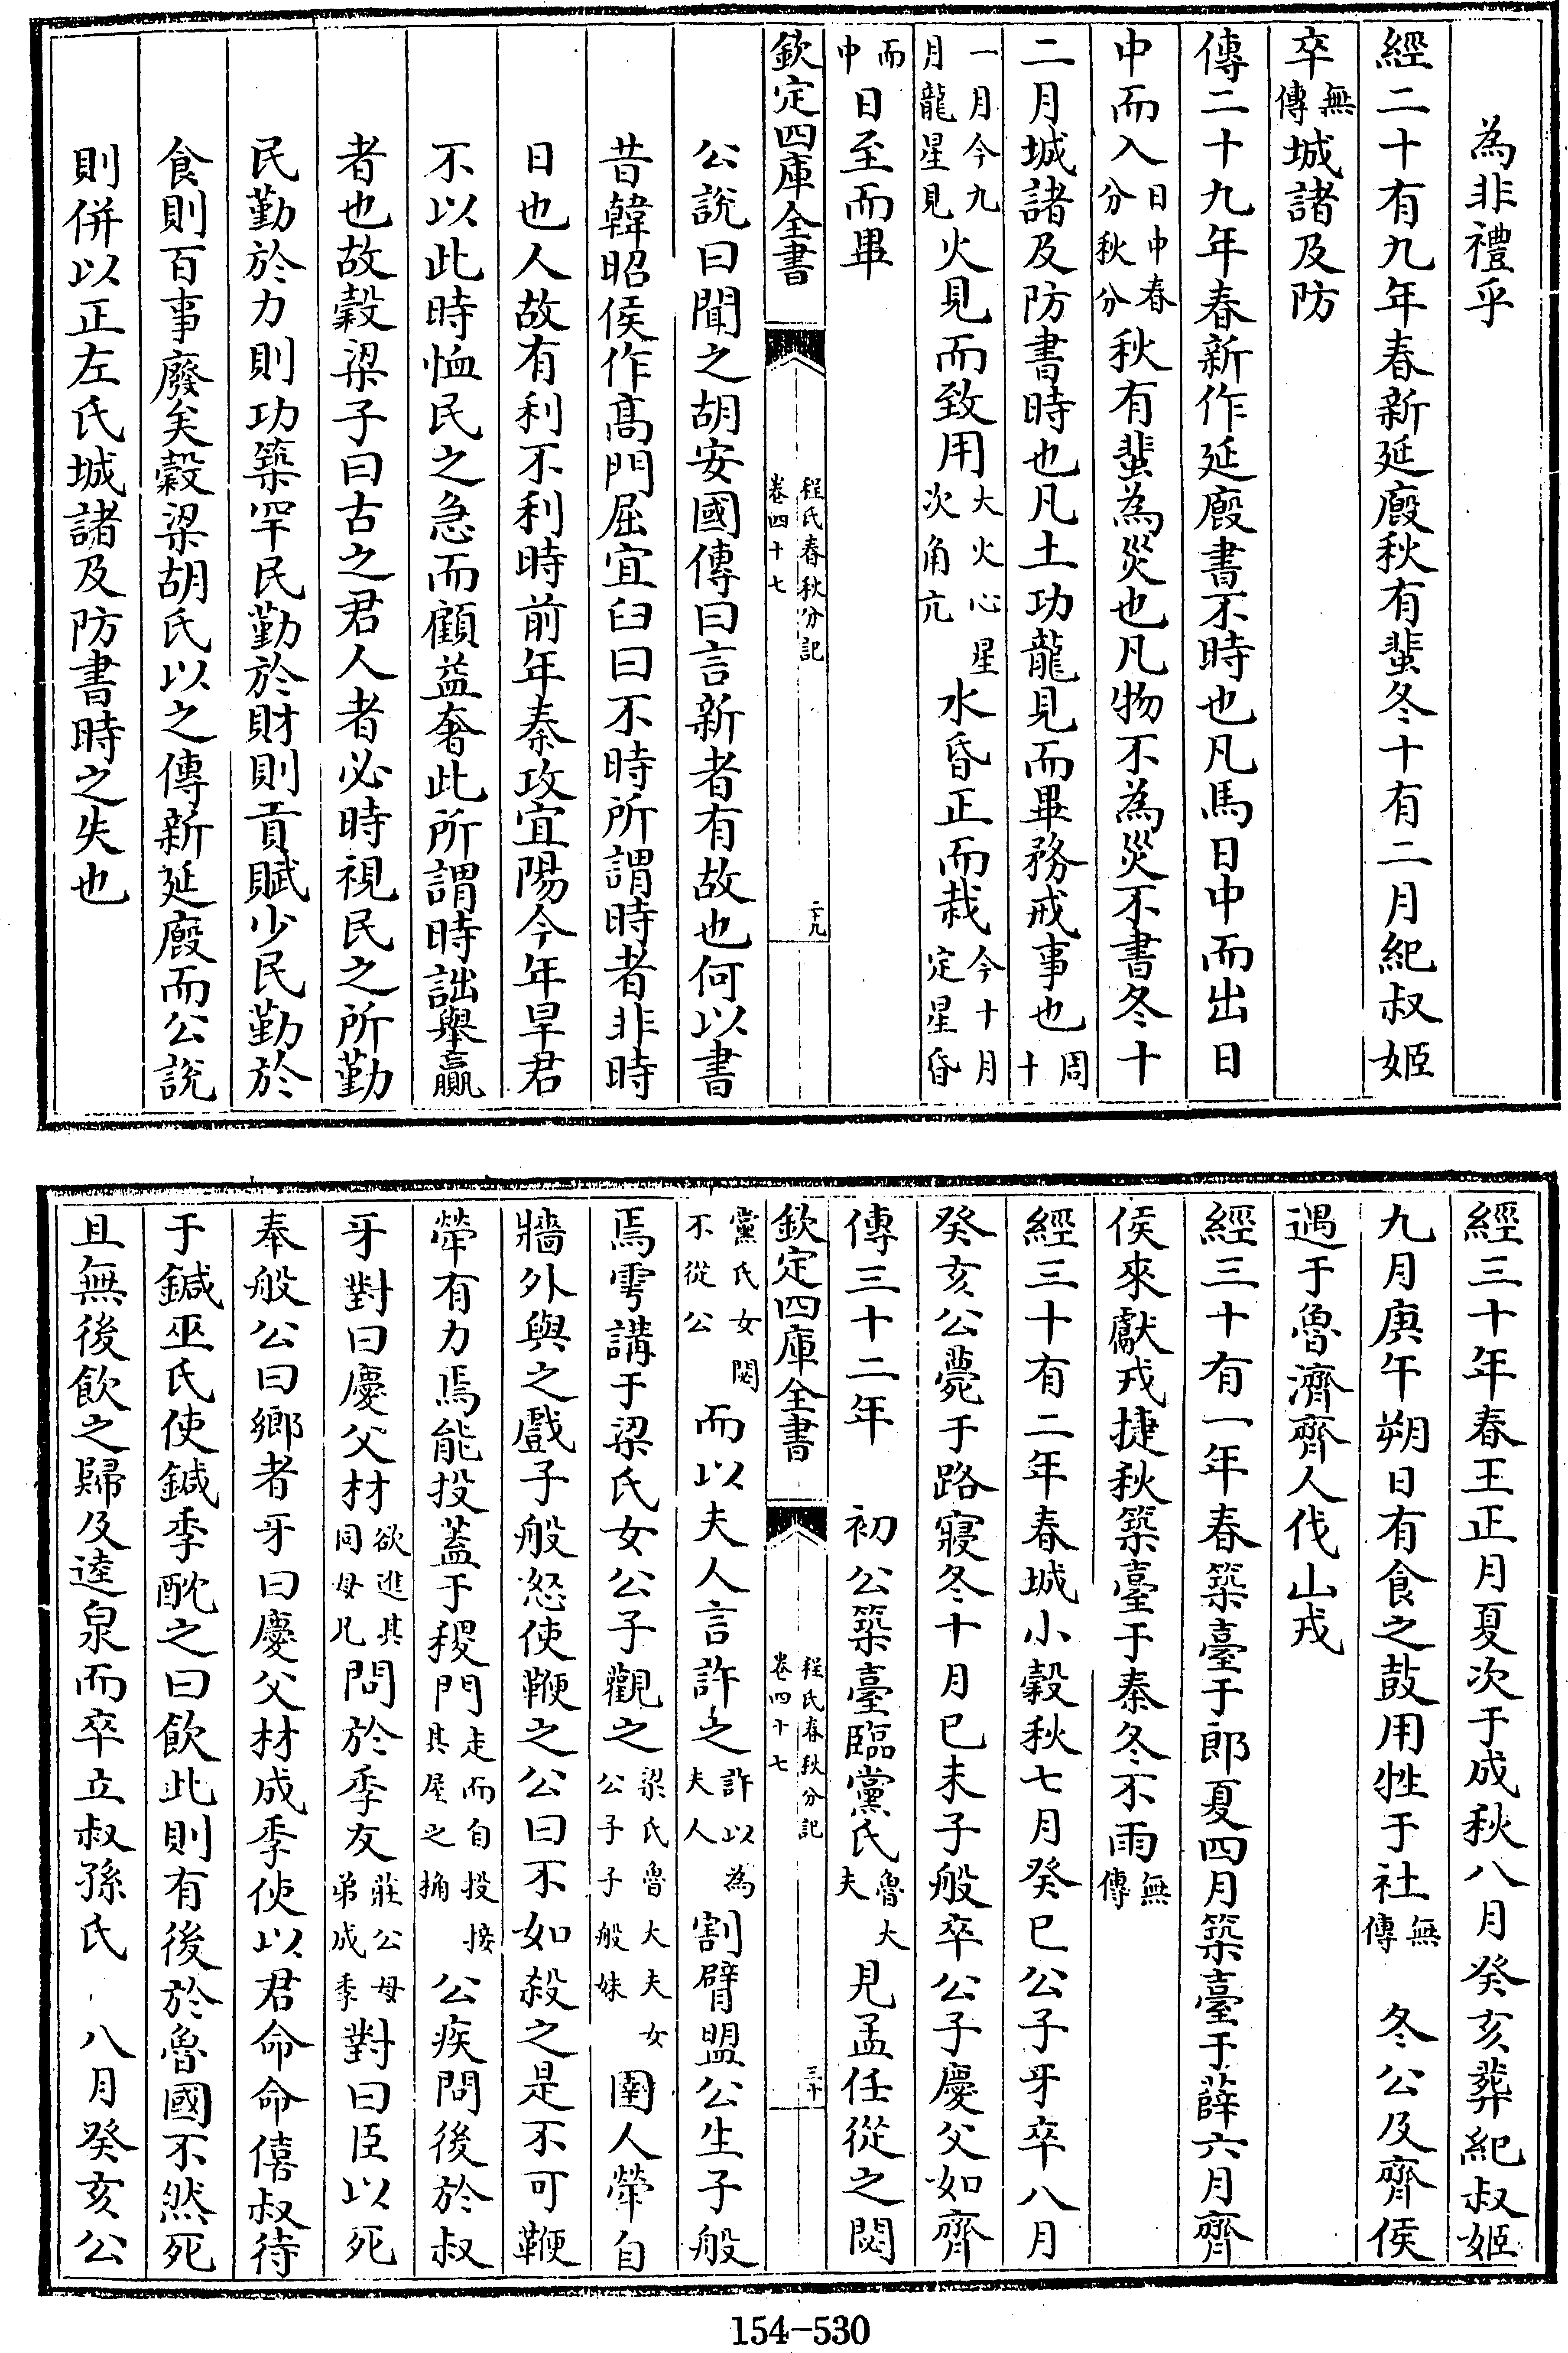 為非禮乎
經二十有九年春新延廄秋有蜚冬十有二月紀叔姬
卒無傳城諸及防
傳二十九年春新作延廄書不時也凡馬日中而出日
中而入日中春分秋分秋有蜚為災也凡物不為災不書冬十
二月城諸及防書時也凡土功龍見而畢務戒事也周十
一月今九月龍星見火見而致用大火心星次角亢水昏正而栽今十月定星昏
而中日至而畢
欽定四庫全書
程氏春秋分記
卷四十七
二十九
公說曰聞之胡安國傳曰言新者有故也何以書
昔韓昭侯作髙門屈宜臼曰不時所謂時者非時
日也人故有利不利時前年秦攻宜陽今年旱君
不以此時恤民之急而顧益奢此所謂時詘舉贏
者也故穀梁子曰古之君人者必時視民之所勤
民勤於力則功築罕民勤於財則貢賦少民勤於
食則百事廢矣穀梁胡氏以之傳新延廄而公說
則併以正左氏城諸及防書時之失也
經三十年春王正月夏次于成秋八月癸亥葬紀叔姬
九月庚午朔日有食之鼓用牲于社無傳 冬公及齊侯
遇于魯濟齊人伐山戎
經三十有一年春築臺于郎夏四月築臺于薛六月齊
侯來獻戎捷秋築臺于秦冬不雨無傳
經三十有二年春城小穀秋七月癸巳公子牙卒八月
癸亥公薨于路寢冬十月已未子般卒公子慶父如齊
傳三十二年 初公築臺臨黨氏魯大夫見孟任從之閟
欽定四庫全書
程氏春秋分記
卷四十七
三十
黨氏女閟不從公而以夫人言許之許以為夫人割臂盟公生子般
焉雩講于梁氏女公子觀之梁氏魯大夫女公子子般妹圉人犖自
牆外與之戲子般怒使鞭之公曰不如殺之是不可鞭
犖有力焉能投蓋于稷門走而自投接其屋之桷公疾問後於叔
牙對曰慶父材欲進其同母兄問於季友莊公母弟成季對曰臣以死
奉般公曰鄉者牙曰慶父材成季使以君命命僖叔待
于鍼巫氏使鍼季酖之曰飲此則有後於魯國不然死
且無後飲之歸及逵泉而卒立叔孫氏 八月癸亥公
154-530